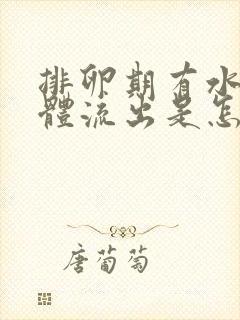 排卵期有水
體流出是怎
唐葡萄